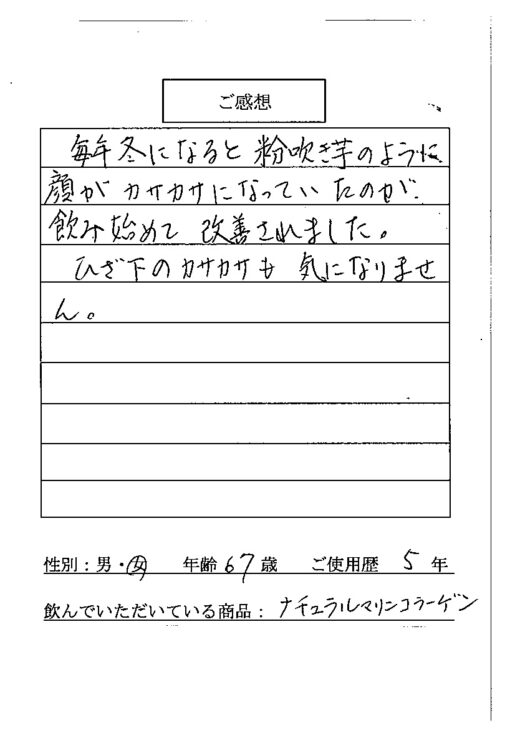 ご感想
毎年冬になると粉吹き芋のように
顔がカサカサになっていたのが、
飲み始めて改善されました。
ひざ下のカサカサも気になりませ
ん。
性別：男・女 年齢 67 歳 ご使用歴 5 年
飲んでいただいている商品： ナチュラルマリンコラーゲン